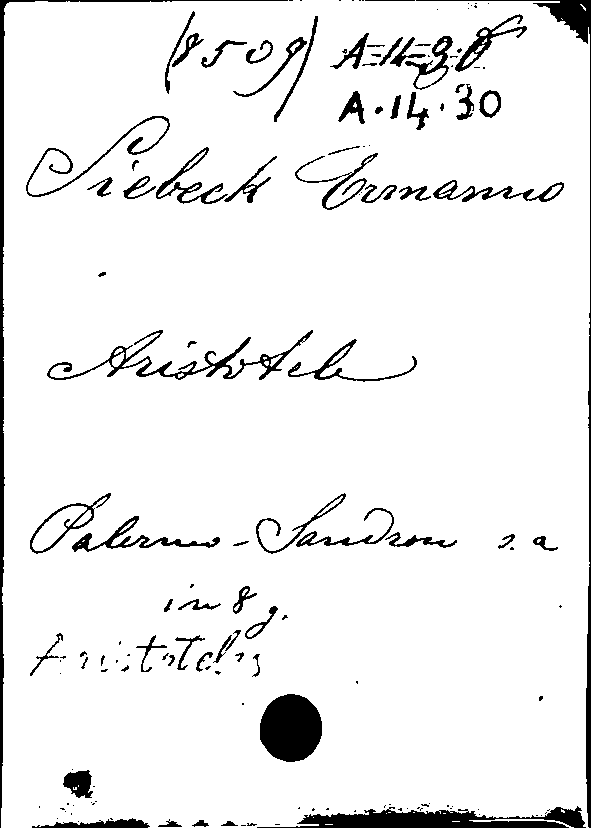 (8509) A-11-30
A.14.30
Siebeck Ermanno
Aristotele
Palermo - Sandron s.a
in 8 g.
Aristoteles